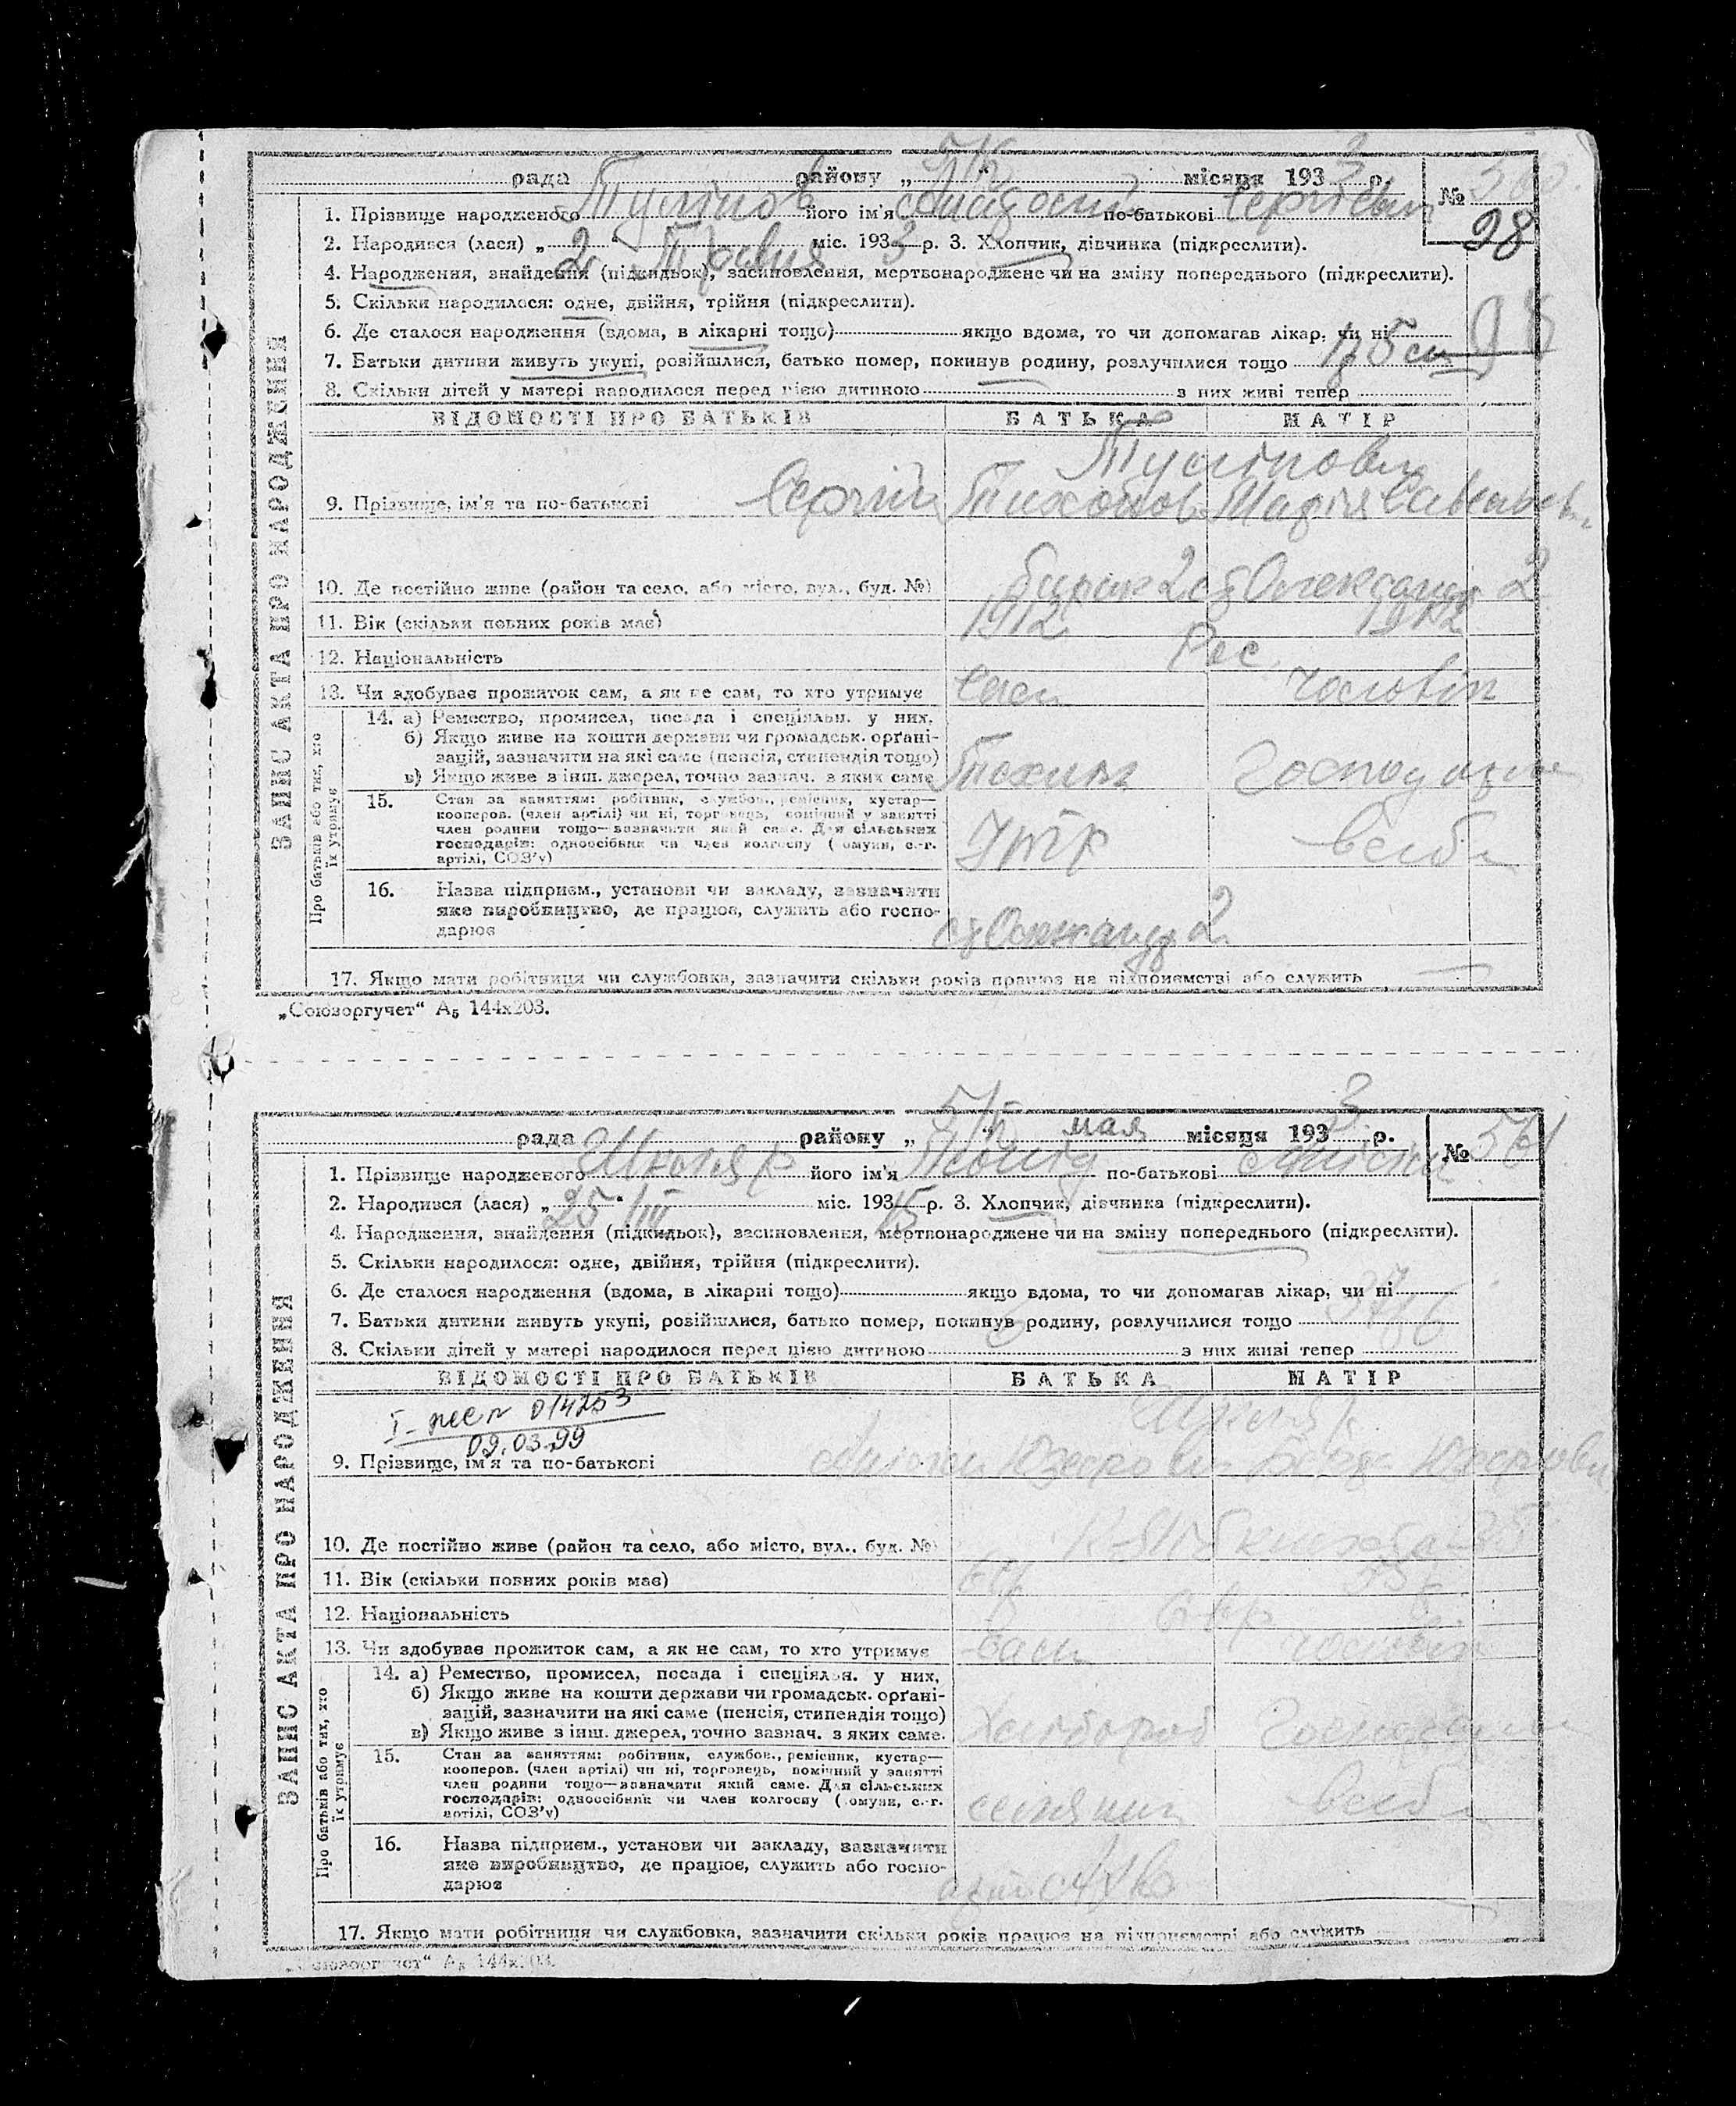 рада району „5/V“ місяця 1933 р. № 560.
1. Прізвище народженого його ім'я по-батькові Сергієвич 98
2. Народився (лася) „2“ Травня міс. 1933 р. 3. Хлопчик, дівчинка (підкреслити).
4. Народження, знайдення (підкидьок), засиновлення, мертвонароджене чи на зміну попереднього (підкреслити).
5. Скільки народилося: одне, двійня, трійня (підкреслити).
6. Де сталося народження (вдома, в лікарні тощо) якщо вдома, то чи допомагав лікар, чи ні
7. Батьки дитини живуть укупі, розійшлися, батько помер, покинув родину, розлучилися тощо
8. Скільки дітей у матері народилося перед цією дитиною з них живі тепер
ВІДОМОСТІ ПРО БАТЬКІВ БАТЬКА МАТІР
9. Прізвище, ім'я та по-батькові Сергій Тихонов Марія
10. Де постійно живе (район та село, або місто, вул., буд. №) 2
11. Вік (скільки повних років має) 1912 1912
12. Національність Рос
13. Чи здобуває прожиток сам, а як не сам, то хто утримує Сам чоловік
14. а) Ремество, промисел, посада і спеціяльн. у них.
б) Якщо живе на кошти держави чи громадськ. орґані-
зацій, зазначити на які саме (пенсія, стипендія тощо)
в) Якщо живе з інш. джерел, точно зазнач. з яких саме Технік
15. Стан за заняттям: робітник, службов., ремісник, кустар—
кооперов. (член артілі) чи ні, торговець, помічний у занятті
член родини тощо—зазначити який саме. Для сільських
господарів: одноосібник чи член колгоспу (комуни, с.-г.
артілі, СОЗ'у) ІТР
16. Назва підприєм., установи чи закладу, зазначити
яке виробництво, де працює, служить або госпо-
дарює
17. Якщо мати робітниця чи службовка, зазначити скільки років працює на підприємстві або служить —
ЗАПИС АКТА ПРО НАРОДЖЕННЯ
Про батьків або тих, хто
їх утримує
„Союзоргучет“ А5 144х203.
рада району „5/V“ мая місяця 1933 р. № 561
1. Прізвище народженого Школяр його ім'я Леонід по-батькові
2. Народився (лася) „25“ міс. 193 р. 3. Хлопчик, дівчинка (підкреслити).
4. Народження, знайдення (підкидьок), засиновлення, мертвонароджене чи на зміну попереднього (підкреслити).
5. Скільки народилося: одне, двійня, трійня (підкреслити).
6. Де сталося народження (вдома, в лікарні тощо) якщо вдома, то чи допомагав лікар, чи ні
7. Батьки дитини живуть укупі, розійшлися, батько помер, покинув родину, розлучилися тощо
8. Скільки дітей у матері народилося перед цією дитиною з них живі тепер
ВІДОМОСТІ ПРО БАТЬКІВ БАТЬКА МАТІР
014253
09.03.99
9. Прізвище, ім'я та по-батькові
10. Де постійно живе (район та село, або місто, вул., буд. №)
11. Вік (скільки повних років має)
12. Національність Євр
13. Чи здобуває прожиток сам, а як не сам, то хто утримує Сам чоловік
14. а) Ремество, промисел, посада і спеціялья. у них,
б) Якщо живе на кошти держави чи громадськ. орґані-
зацій, зазначити на які саме (пенсія, стипендія тощо)
в) Якщо живе з інш. джерел, точно зазнач. з яких саме. Хлібороб
15. Стан за заняттям: робітник, службов., ремісник, кустар—
кооперов. (член артілі) чи ні, торговець, помічний у занятті
член родини тощо—зазначити який саме. Для сільських
господарів: одноосібник чи член колгоспу (комуни, с.-г.
артілі, СОЗ'у) селянин
16. Назва підприєм., установи чи закладу, зазначити
яке виробництво, де працює, служить або госпо-
дарює
17. Якщо мати робітниця чи службовка, зазначити скільки років працює на підприємстві або служить
ЗАПИС АКТА ПРО НАРОДЖЕННЯ
Про батьків або тих, хто
їх утримує
„Союзоргучет“ А5 144х203.